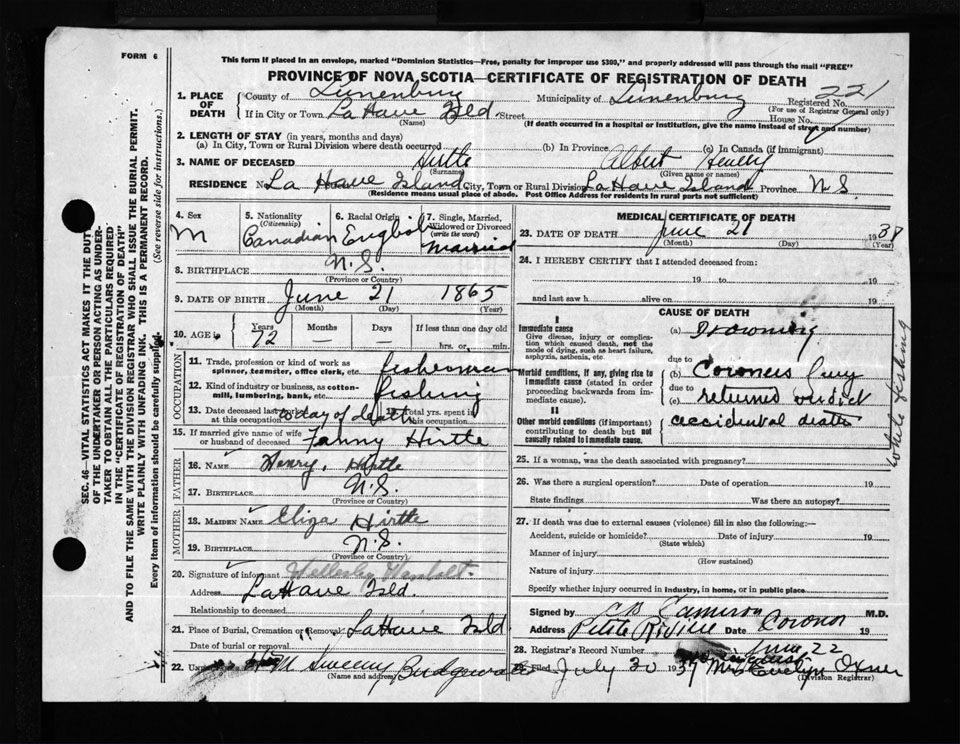 FORM 6
This form if placed in an envelope, marked "Dominion Statistics—Free, penalty for improper use $300," and properly addressed will pass through the mail "FREE"
PROVINCE OF NOVA SCOTIA—CERTIFICATE OF REGISTRATION OF DEATH
1. PLACE OF DEATH County of Lunenburg Municipality of Lunenburg Registered No. 221
(For use of Registrar General only)
If in City or Town LaHave Isld. Street House No.
(Name) (If death occurred in a hospital or institution, give the name instead of street and number)
2. LENGTH OF STAY (in years, months and days)
(a) In City, Town or Rural Division where death occurred (b) In Province (c) In Canada (if immigrant)
3. NAME OF DECEASED Hirtle Albert
(Surname) (Given name or names)
RESIDENCE No. La Have Island City, Town or Rural Division LaHave Island Province N S
(Residence means usual place of abode. Post Office Address for residents in rural parts not sufficient)
4. Sex M
5. Nationality (Citizenship) Canadian
6. Racial Origin English
7. Single, Married, Widowed or Divorced (write the word) Married
8. BIRTHPLACE N.S.
(Province or Country)
9. DATE OF BIRTH June 21 1865
(Month) (Day) (Year)
10. AGE is Years 72 Months — Days — If less than one day old hrs. or min.
OCCUPATION
11. Trade, profession or kind of work as spinner, teamster, office clerk, etc. fisherman
12. Kind of industry or business, as cotton-mill, lumbering, bank, etc. fishing
13. Date deceased last worked at this occupation to day of death 14. Total yrs. spent in this occupation
15. If married give name of wife or husband of deceased Fanny Hirtle
FATHER
16. NAME Henry Hirtle
17. BIRTHPLACE N.S.
(Province or Country)
MOTHER
18. MAIDEN NAME Eliza Hirtle
19. BIRTHPLACE N.S.
(Province or Country)
20. Signature of informant
Address LaHave Isld.
Relationship to deceased
21. Place of Burial, Cremation or Removal LaHave Isld
Date of burial or removal
22. Sweeny Bridgewater
(Name and address)
MEDICAL CERTIFICATE OF DEATH
23. DATE OF DEATH June 21 193
(Month) (Day) (Year)
24. I HEREBY CERTIFY that I attended deceased from:
19 to 19
and last saw h alive on 19
CAUSE OF DEATH
I
Immediate cause
Give disease, injury or complication which caused death, not the mode of dying, such as heart failure, asphyxia, asthenia, etc.
(a) Drowning
Morbid conditions, if any, giving rise to immediate cause (stated in order proceeding backwards from immediate cause).
due to
(b) Coroners jury
due to
(c) returned verdict
II
Other morbid conditions (if important) contributing to death but not causally related to immediate cause.
accidental death
while fishing
25. If a woman, was the death associated with pregnancy?
26. Was there a surgical operation? Date of operation 19
State findings Was there an autopsy?
27. If death was due to external causes (violence) fill in also the following:—
Accident, suicide or homicide? Date of injury 19
(State which)
Manner of injury
(How sustained)
Nature of injury
Specify whether injury occurred in industry, in home, or in public place
Signed by Cameron M.D.
Address Petite Riviere Date Coronor 19
28. Registrar's Record Number June 22
Filed July 30 1937 Mrs Evelyn Oxner
(Division Registrar)
SEC. 46—VITAL STATISTICS ACT MAKES IT THE DUTY OF THE UNDERTAKER OR PERSON ACTING AS UNDERTAKER TO OBTAIN ALL THE PARTICULARS REQUIRED IN THE "CERTIFICATE OF REGISTRATION OF DEATH" AND TO FILE THE SAME WITH THE DIVISION REGISTRAR WHO SHALL ISSUE THE BURIAL PERMIT.
WRITE PLAINLY WITH UNFADING INK. THIS IS A PERMANENT RECORD.
Every item of information should be carefully supplied. (See reverse side for instructions.)